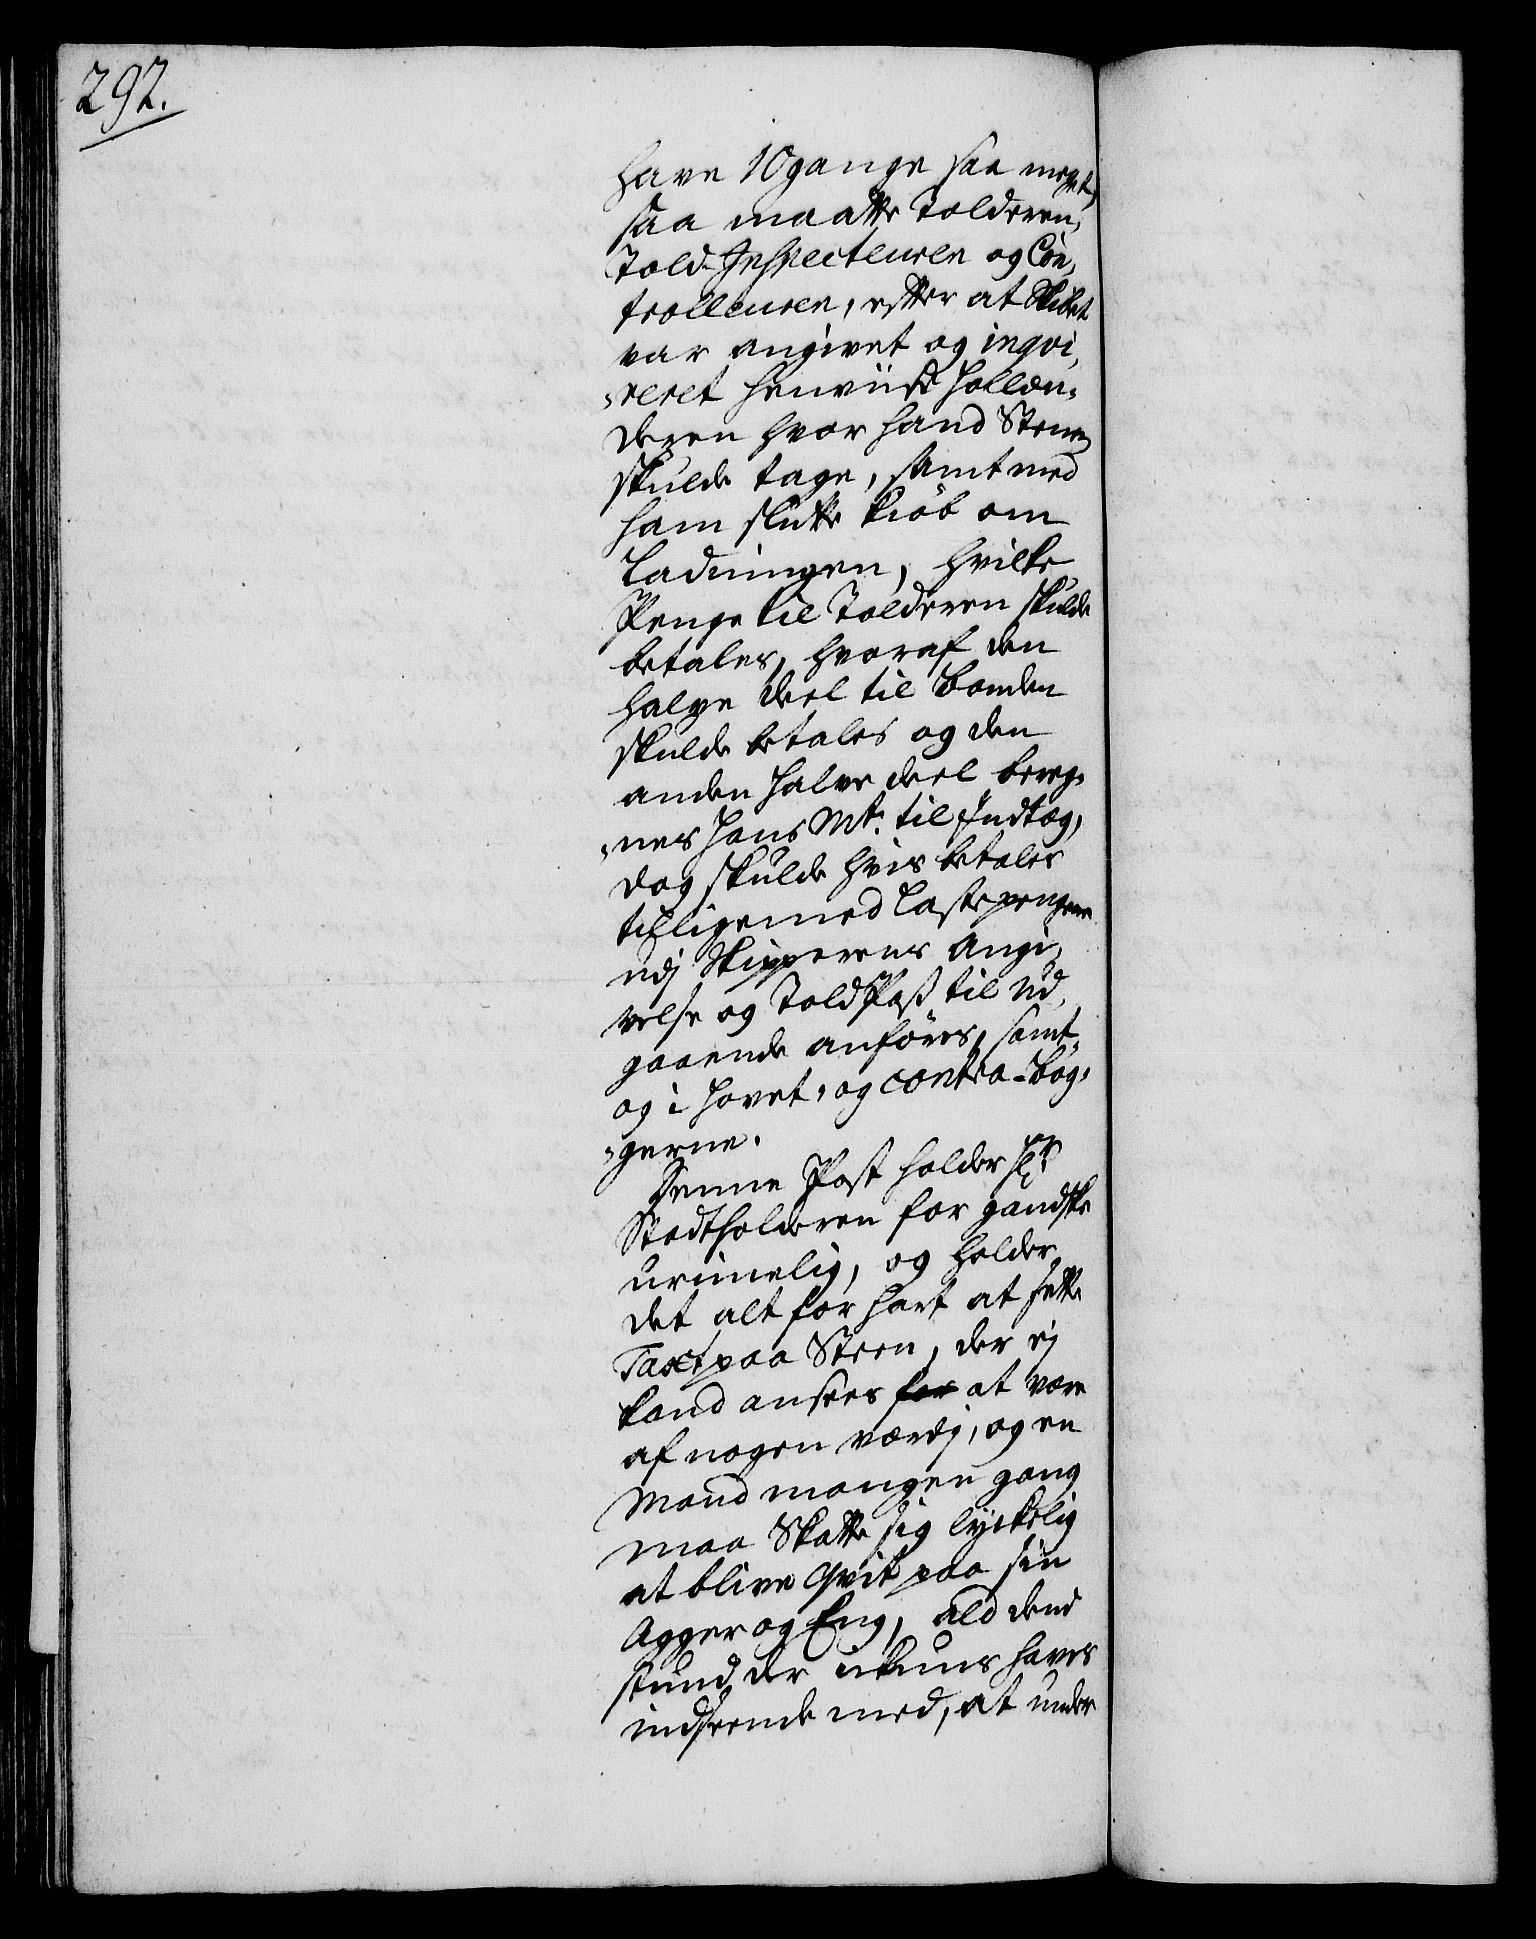 292.
have 10 gange saa meget,
saa maatte Tolderen,
Told-Inspecteuren og Con,
trolleuren, efter at Skibet
var angivet og inqvi,
„reret henviise Hollæn„
deren hvor hand Steene
skulde tage, samt med
ham slutte kiöb om
Ladningen, hvilke
Penge til Tolderen skulde
betales, hvoraf den
halve deel til Bonden
skulde betales og den
anden halve deel bereg„
„nes Hans Mt. til Indtægt,
dog skulde hvis betales
tilligemed Lastepengene
udj Skipperens Angi,
velse og Told Pass til Ud,
gaaende anföres, samt„
og i Hovet„ og contra-Bög„
„gerne.
Denne Post holder Hr.
Stadtholderen for gandske
urimelig, og holder
det alt for hart at sette
Taxt paa Steen, der ej
kand ansees for at være
af nogen værdj, og en
Mand mangen gang
maa Skatte sig lyckelig
at blive qvit paa sin
Agger og Eng, ald dend
stund der ickuns haves
indseende med, at under